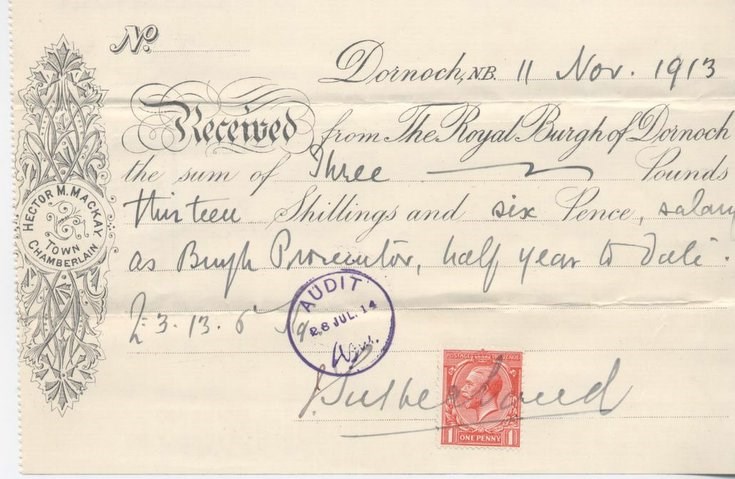 No.
Dornoch, N.B. 11 Nov. 1913
Received from The Royal Burgh of Dornoch
the sum of Three Pounds
thirteen Shillings and six Pence, salary
as Burgh Prosecutor, half year to date.
£3.13.6
J Sutherland
HECTOR M. MACKAY
TOWN
CHAMBERLAIN
AUDIT
28 JUL. 14
ONE PENNY
1 1